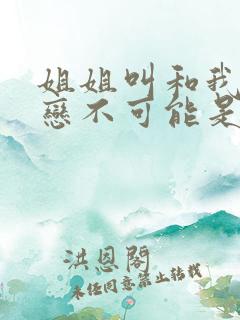 姐姐叫和我
戀不可能是
洪恩閣
未經同意禁止轉載